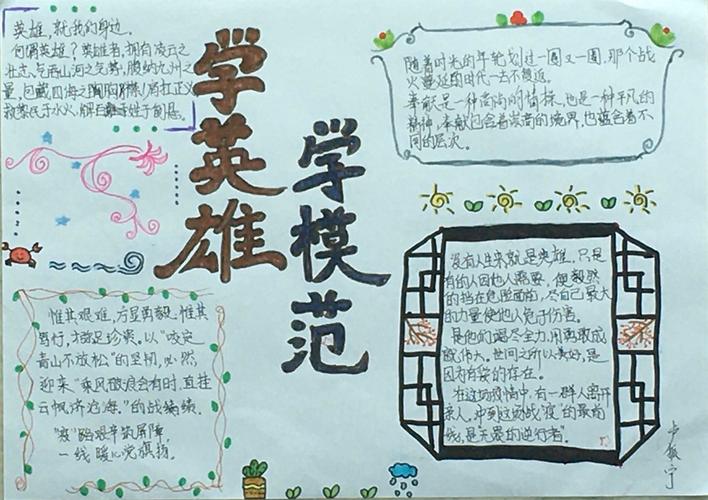 英雄，就在我的身边。
何谓英雄？英雄者，拥有凌云之
壮志，气吞山河之气势，腹纳九州之
量，包藏四海之胸襟！肩扛正义
救黎民于水火，解百姓于倒悬。
学英雄
学模范
随着时光的年轮划过一圈又一圈，那个战
火蔓延的时代一去不复返。
奉献是一种高尚的情操，也是一种平凡的
精神，奉献包含着崇高的境界，也蕴含着不
同的层次。
惟其艰难，方显勇毅，惟其
笃行，才弥足珍贵。以“咬定
青山不放松”的坚韧，必然
迎来“乘风破浪会有时，直挂
云帆济沧海。”的战绩
“疫”路艰辛筑屏障，
一线暖心党旗扬。
没有人生来就是英雄，只是
有的人因他人需要，便毅然
的挡在危险面前，尽自己最大
的力量使他人免于伤害。
是他们竭尽全力，用勇敢成
就伟大。世间之所以美好，是
因为有爱的存在。
在这场疫情中，有一群人离开
亲人，冲到这场战“疫”的最前
线，是无畏的逆行者”。